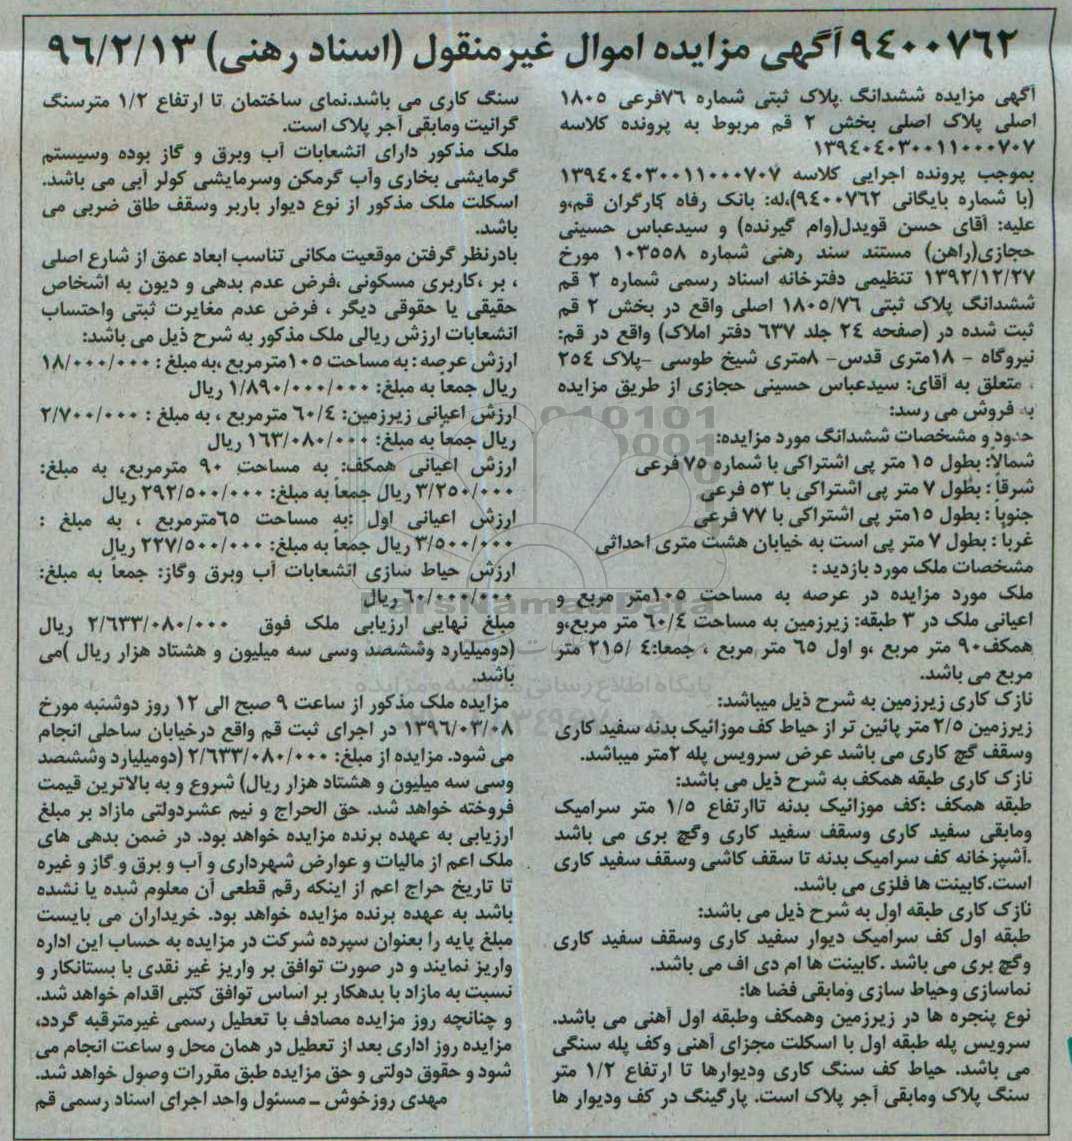 ۹۴۰۰۷۶۲ آگهی مزایده اموال غیرمنقول (اسناد رهنی) ۹۶/۲/۱۳
آگهی مزایده ششدانگ پلاک ثبتی شماره ۷۶فرعی ۱۸۰۵
اصلی پلاک اصلی بخش ۲ قم مربوط به پرونده کلاسه
۱۳۹۴۰۴۰۳۰۰۱۱۰۰۰۷۰۷
بموجب پرونده اجرایی کلاسه ۱۳۹۴۰۴۰۳۰۰۱۱۰۰۰۷۰۷
(با شماره بایگانی ۹۴۰۰۷۶۲)،له: بانک رفاه کارگران قم،و
علیه: آقای حسن قویدل(وام گیرنده) و سیدعباس حسینی
حجازی(راهن) مستند سند رهنی شماره ۱۰۳۵۵۸ مورخ
۱۳۹۲/۱۲/۲۷ تنظیمی دفترخانه اسناد رسمی شماره ۲ قم
ششدانگ پلاک ثبتی ۱۸۰۵/۷۶ اصلی واقع در بخش ۲ قم
ثبت شده در (صفحه ۲۴ جلد ۶۳۷ دفتر املاک) واقع در قم:
نیروگاه - ۱۸متری قدس- ۸متری شیخ طوسی -پلاک ۲۵۴
، متعلق به آقای: سیدعباس حسینی حجازی از طریق مزایده
به فروش می رسد:
حدود و مشخصات ششدانگ مورد مزایده:
شمالاً: بطول ۱۵ متر پی اشتراکی با شماره ۷۵ فرعی
شرقاً : بطول ۷ متر پی اشتراکی با ۵۳ فرعی
جنوباً : بطول ۱۵متر پی اشتراکی با ۷۷ فرعی
غرباً : بطول ۷ متر پی است به خیابان هشت متری احداثی
مشخصات ملک مورد بازدید :
ملک مورد مزایده در عرصه به مساحت ۱۰۵متر مربع و
اعیانی ملک در ۳ طبقه: زیرزمین به مساحت ۶۰/۴ متر مربع،و
همکف۹۰ متر مربع ،و اول ۶۵ متر مربع ، جمعا:۴ /۲۱۵ متر
مربع می باشد.
نازک کاری زیرزمین به شرح ذیل میباشد:
زیرزمین ۲/۵ متر پائین تر از حیاط کف موزائیک بدنه سفید کاری
وسقف گچ کاری می باشد عرض سرویس پله ۲متر میباشد.
نازک کاری طبقه همکف به شرح ذیل می باشد:
طبقه همکف :کف موزائیک بدنه تاارتفاع ۱/۵ متر سرامیک
ومابقی سفید کاری وسقف سفید کاری وگچ بری می باشد
.آشپزخانه کف سرامیک بدنه تا سقف کاشی وسقف سفید کاری
است.کابینت ها فلزی می باشد.
نازک کاری طبقه اول به شرح ذیل می باشد:
طبقه اول کف سرامیک دیوار سفید کاری وسقف سفید کاری
وگچ بری می باشد .کابینت ها ام دی اف می باشد.
نماسازی وحیاط سازی ومابقی فضا ها:
نوع پنجره ها در زیرزمین وهمکف وطبقه اول آهنی می باشد.
سرویس پله طبقه اول با اسکلت مجزای آهنی وکف پله سنگی
می باشد. حیاط کف سنگ کاری ودیوارها تا ارتفاع ۱/۲ متر
سنگ پلاک ومابقی آجر پلاک است. پارکینگ در کف ودیوار ها
سنگ کاری می باشد.نمای ساختمان تا ارتفاع ۱/۲ مترسنگ
گرانیت ومابقی آجر پلاک است.
ملک مذکور دارای انشعابات آب وبرق و گاز بوده وسیستم
گرمایشی بخاری وآب گرمکن وسرمایشی کولر آبی می باشد.
اسکلت ملک مذکور از نوع دیوار باربر وسقف طاق ضربی می
باشد.
بادرنظر گرفتن موقعیت مکانی تناسب ابعاد عمق از شارع اصلی
، بر ،کاربری مسکونی ،فرض عدم بدهی و دیون به اشخاص
حقیقی یا حقوقی دیگر ، فرض عدم مغایرت ثبتی واحتساب
انشعابات ارزش ریالی ملک مذکور به شرح ذیل می باشد:
ارزش عرصه : به مساحت ۱۰۵مترمربع ،به مبلغ : ۱۸/۰۰۰/۰۰۰
ریال جمعاً به مبلغ: ۱/۸۹۰/۰۰۰/۰۰۰ ریال
ارزش اعیانی زیرزمین: ۶۰/۴ مترمربع ، به مبلغ : ۲/۷۰۰/۰۰۰
ریال جمعاً به مبلغ: ۱۶۳/۰۸۰/۰۰۰ ریال
ارزش اعیانی همکف: به مساحت ۹۰ مترمربع، به مبلغ:
۳/۲۵۰/۰۰۰ ریال جمعاً به مبلغ: ۲۹۲/۵۰۰/۰۰۰ ریال
ارزش اعیانی اول :به مساحت ۶۵مترمربع ، به مبلغ :
۳/۵۰۰/۰۰۰ ریال جمعاً به مبلغ: ۲۲۷/۵۰۰/۰۰۰ ریال
ارزش حیاط سازی انشعابات آب وبرق وگاز: جمعاً به مبلغ:
۶۰/۰۰۰/۰۰۰ ریال
مبلغ نهایی ارزیابی ملک فوق ۲/۶۳۳/۰۸۰/۰۰۰ ریال
(دومیلیارد وششصد وسی سه میلیون و هشتاد هزار ریال )می
باشد.
مزایده ملک مذکور از ساعت ۹ صبح الی ۱۲ روز دوشنبه مورخ
۱۳۹۶/۰۳/۰۸ در اجرای ثبت قم واقع درخیابان ساحلی انجام
می شود. مزایده از مبلغ: ۲/۶۳۳/۰۸۰/۰۰۰ (دومیلیارد وششصد
وسی سه میلیون و هشتاد هزار ریال) شروع و به بالاترین قیمت
فروخته خواهد شد. حق الحراج و نیم عشردولتی مازاد بر مبلغ
ارزیابی به عهده برنده مزایده خواهد بود. در ضمن بدهی های
ملک اعم از مالیات و عوارض شهرداری و آب و برق و گاز و غیره
تا تاریخ حراج اعم از اینکه رقم قطعی آن معلوم شده یا نشده
باشد به عهده برنده مزایده خواهد بود. خریداران می بایست
مبلغ پایه را بعنوان سپرده شرکت در مزایده به حساب این اداره
واریز نمایند و در صورت توافق بر واریز غیر نقدی با بستانکار و
نسبت به مازاد با بدهکار بر اساس توافق کتبی اقدام خواهد شد.
و چنانچه روز مزایده مصادف با تعطیل رسمی غیرمترقبه گردد،
مزایده روز اداری بعد از تعطیل در همان محل و ساعت انجام می
شود و حقوق دولتی و حق مزایده طبق مقررات وصول خواهد شد.
مهدی روزخوش ــ مسئول واحد اجرای اسناد رسمی قم
ParsNamadData
پایگاه اطلاع رسانی مناقصه و مزایده